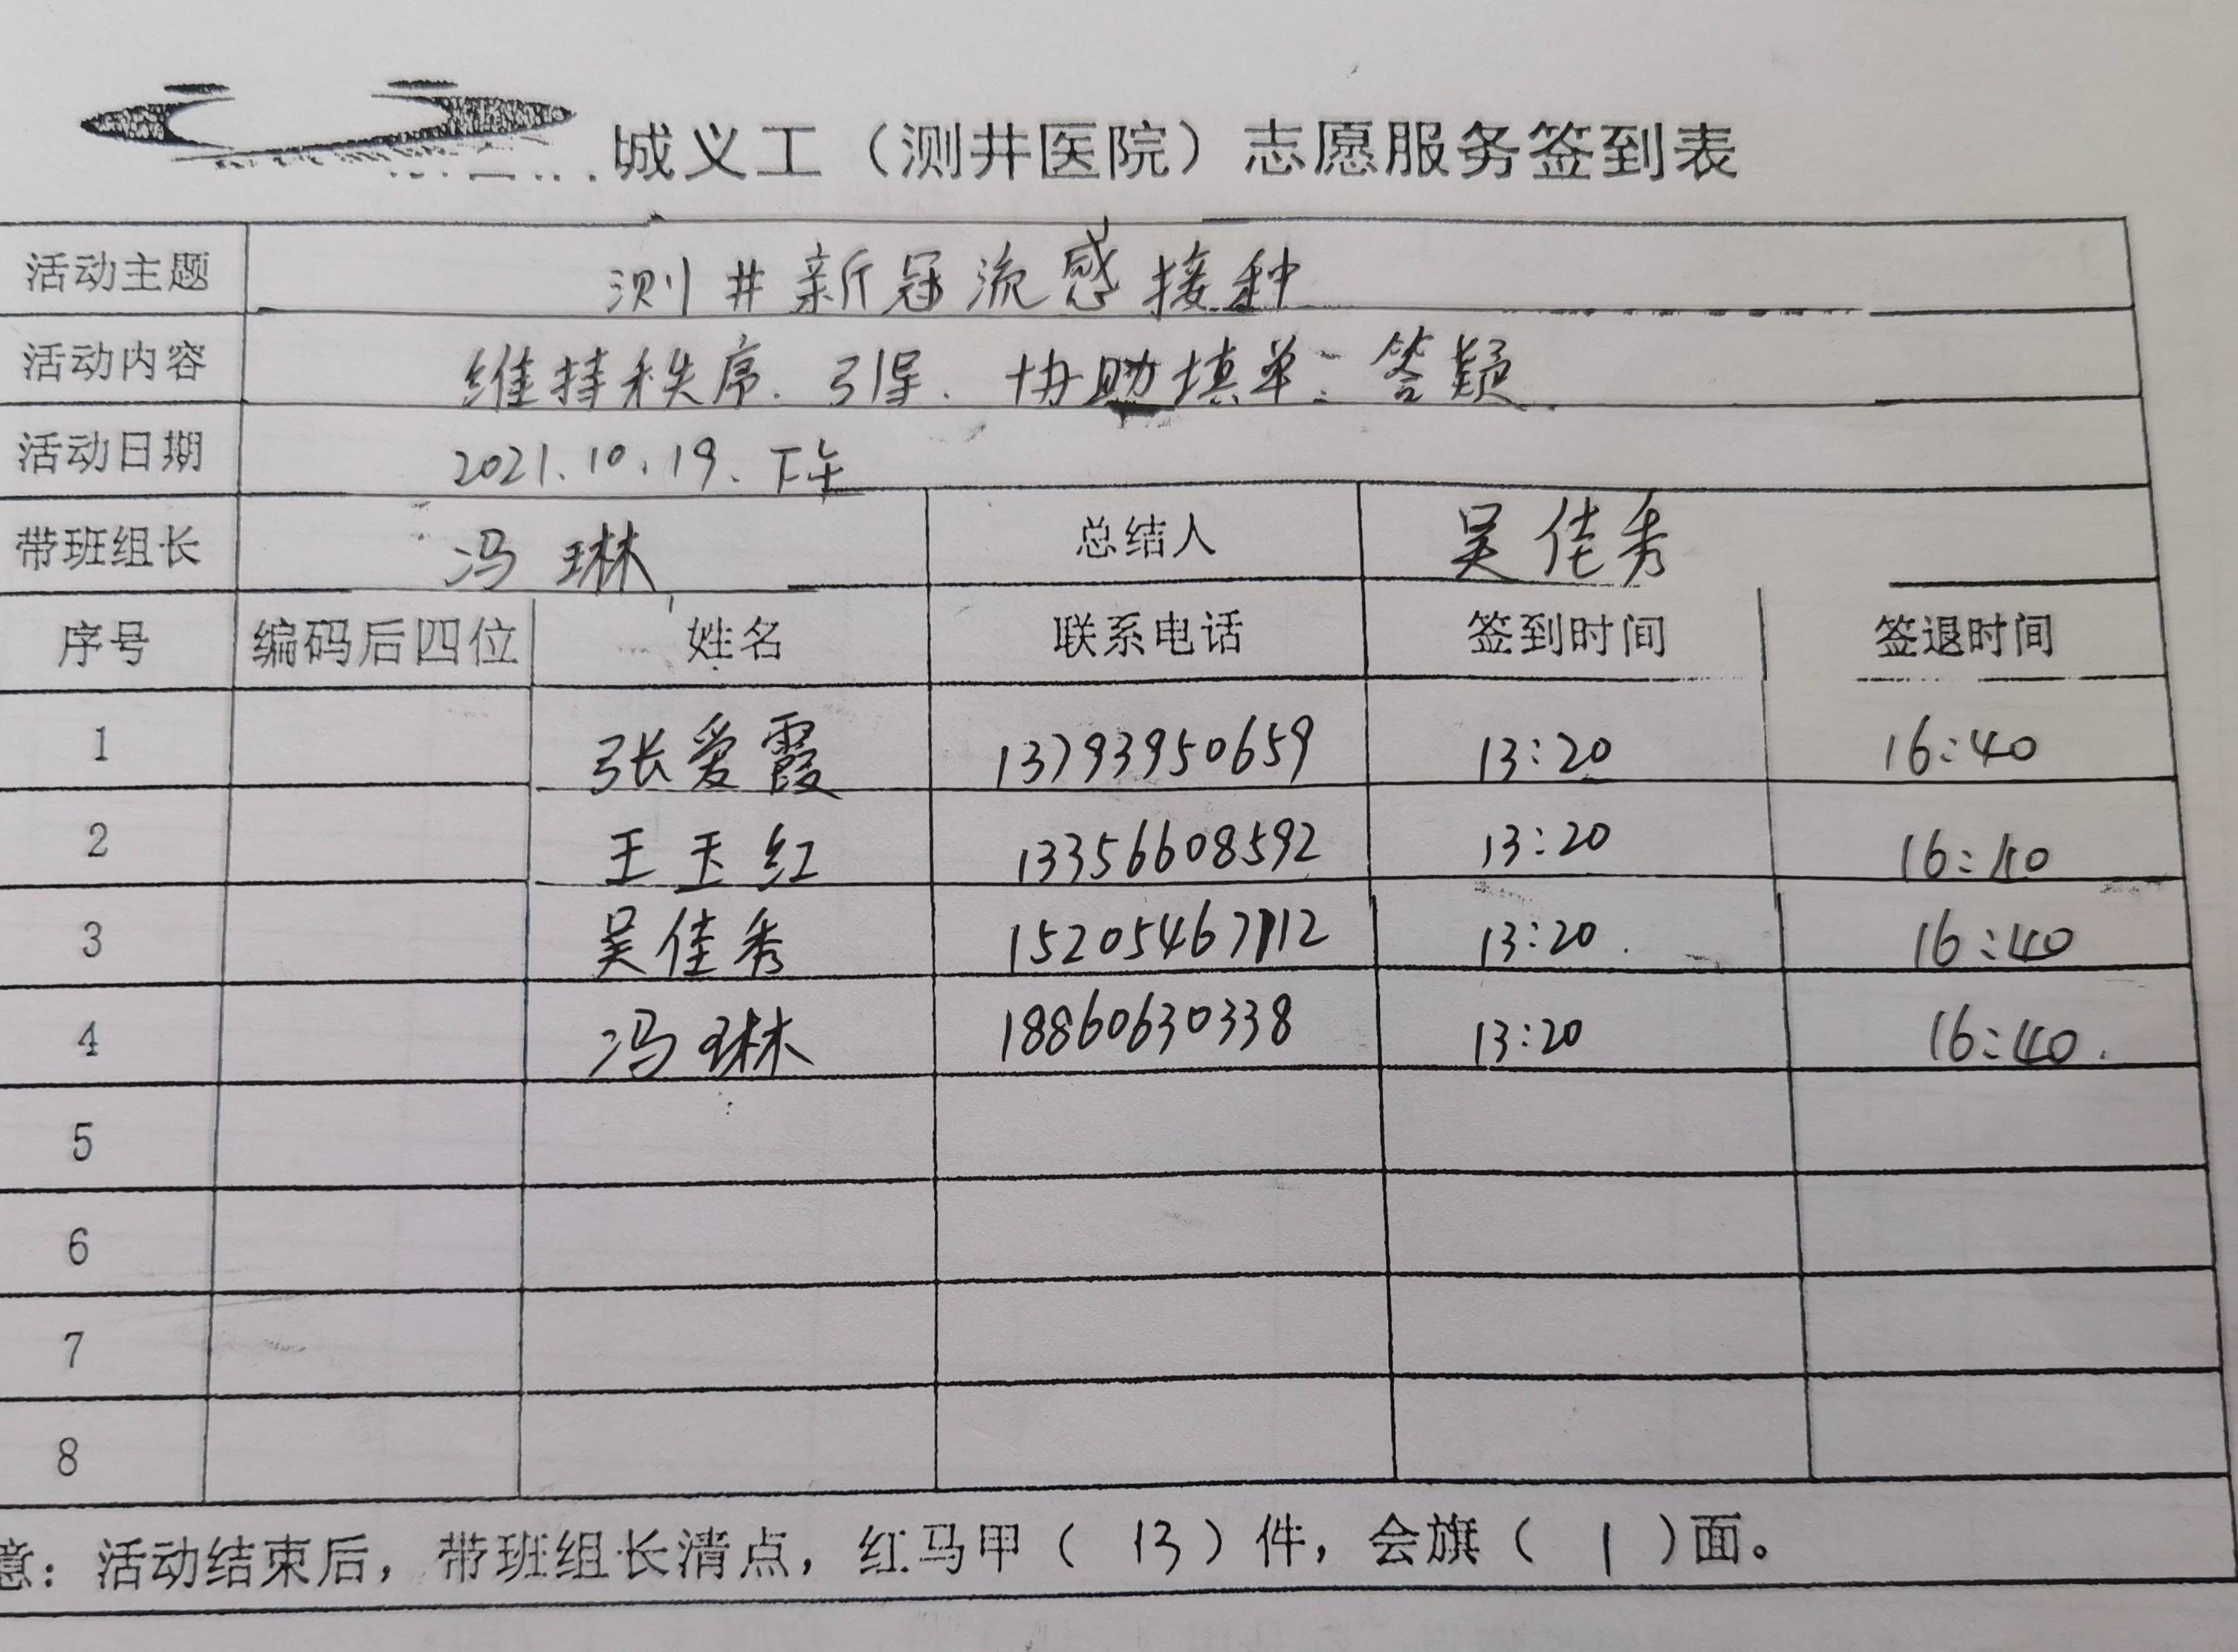 城义工（测井医院）志愿服务签到表
活动主题 测井新冠流感接种
活动内容 维持秩序、引导、协助填单、答疑
活动日期 2021.10.19.下午
带班组长 冯琳 总结人 吴佳秀
序号 编码后四位 姓名 联系电话 签到时间 签退时间
1 张爱霞 13793950659 13:20 16:40
2 王玉红 13356608592 13:20 16:40
3 吴佳秀 15205467112 13:20 16:40
4 冯琳 18860630338 13:20 16:40
5
6
7
8
意：活动结束后，带班组长清点，红马甲（13）件，会旗（1）面。